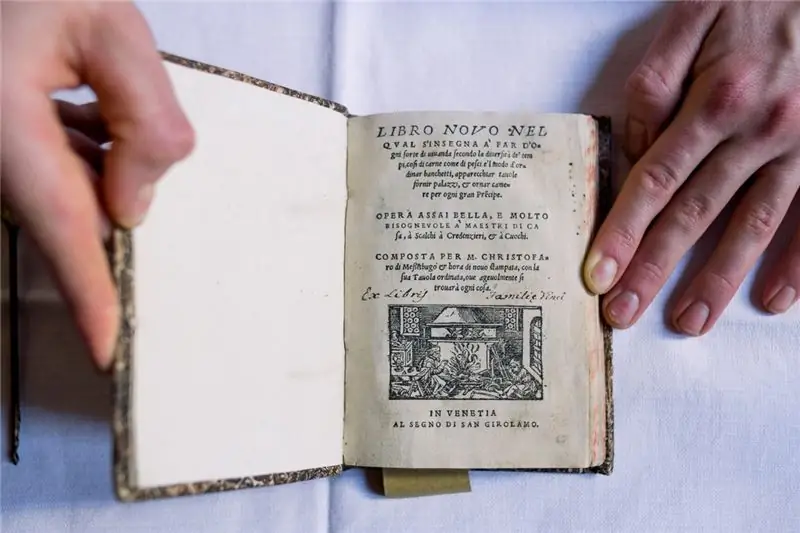 LIBRO NOVO NEL
QVAL S'INSEGNA A' FAR D'O-
gni sorte di uiuanda secondo la diuersità de' tem
pi, cosi di carne come di pesci e'l modo d'or-
dinar banchetti, apparecchiar tauole
fornir palazzi, & ornar came-
re per ogni gran Prēcipe.
OPERA ASSAI BELLA, E MOLTO
BISOGNEVOLE A' MAESTRI DI CA
sa, à Scalchi à Credenzieri, & à Cuochi.
COMPOSTA PER M. CHRISTOFA-
ro di Messisbugo & hora di nouo stampata, con la
sua Tauola ordinata, oue ageuolmente si
trouarà ogni cosa.
Ex Libris Familiæ
IN VENETIA
AL SEGNO DI SAN GIROLAMO.